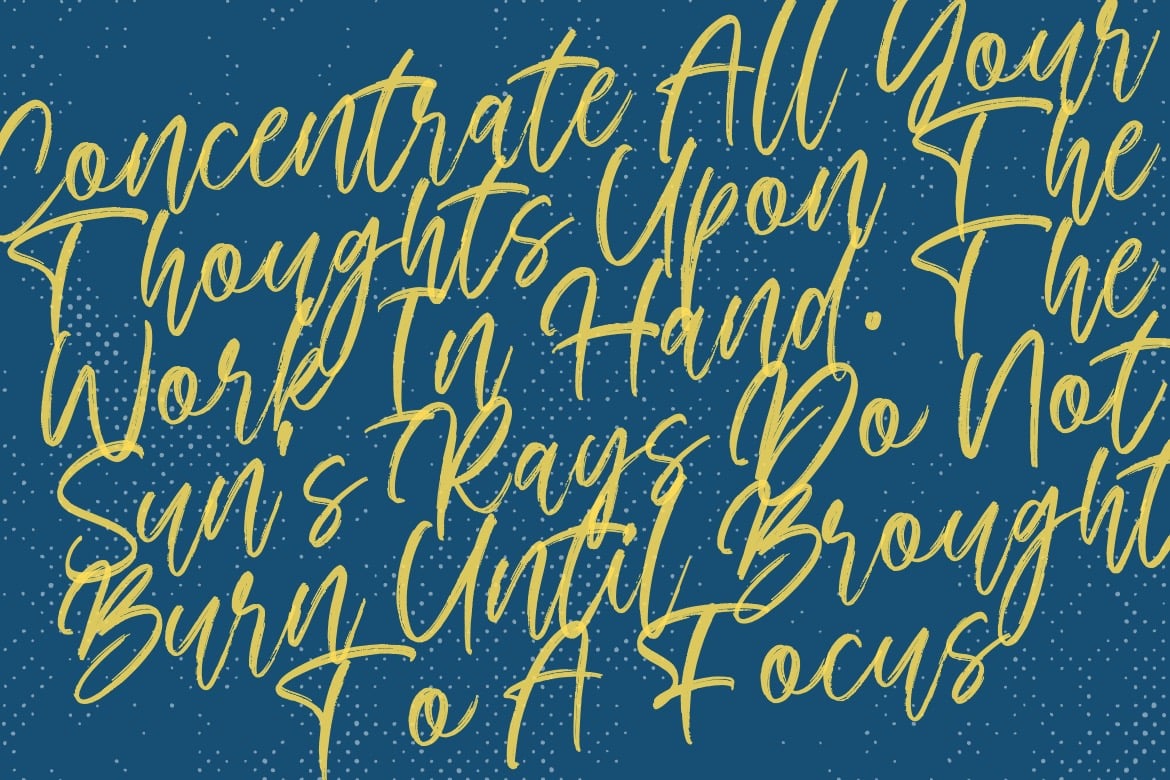 Concentrate All Your
Thoughts Upon The
Work In Hand. The
Sun's Rays Do Not
Burn Until Brought
To A Focus